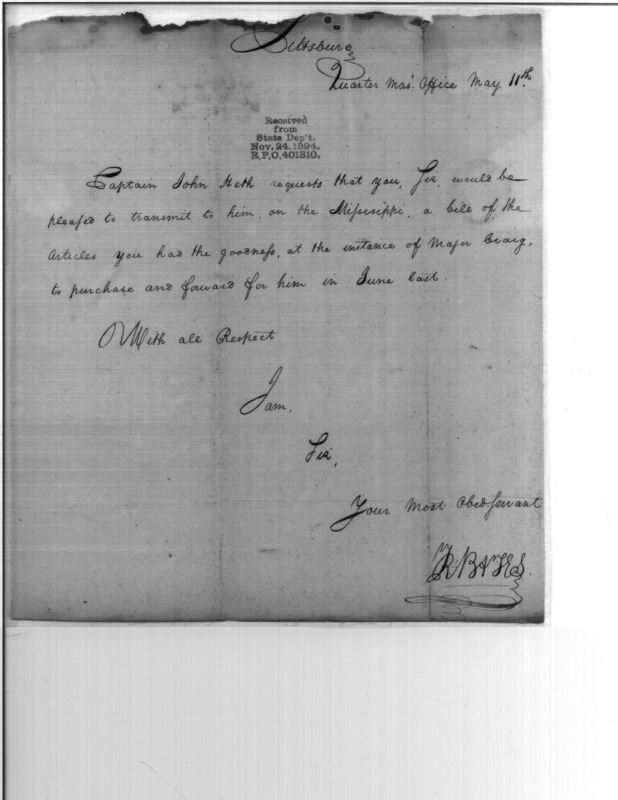 Pittsburg
Quarter Mas'. Office May 11th.
Received
from
State Dep't.
Nov. 24. 1894.
R.P.O. 401810.
Captain John Heth requests that you, Sir, would be
pleased to transmit to him, on the Mississippi, a bill of the
Articles you had the goodness, at the instance of Major Craig,
to purchase and forward for him in June last.
With all Respect
I am,
Sir,
Your most Obed Servant